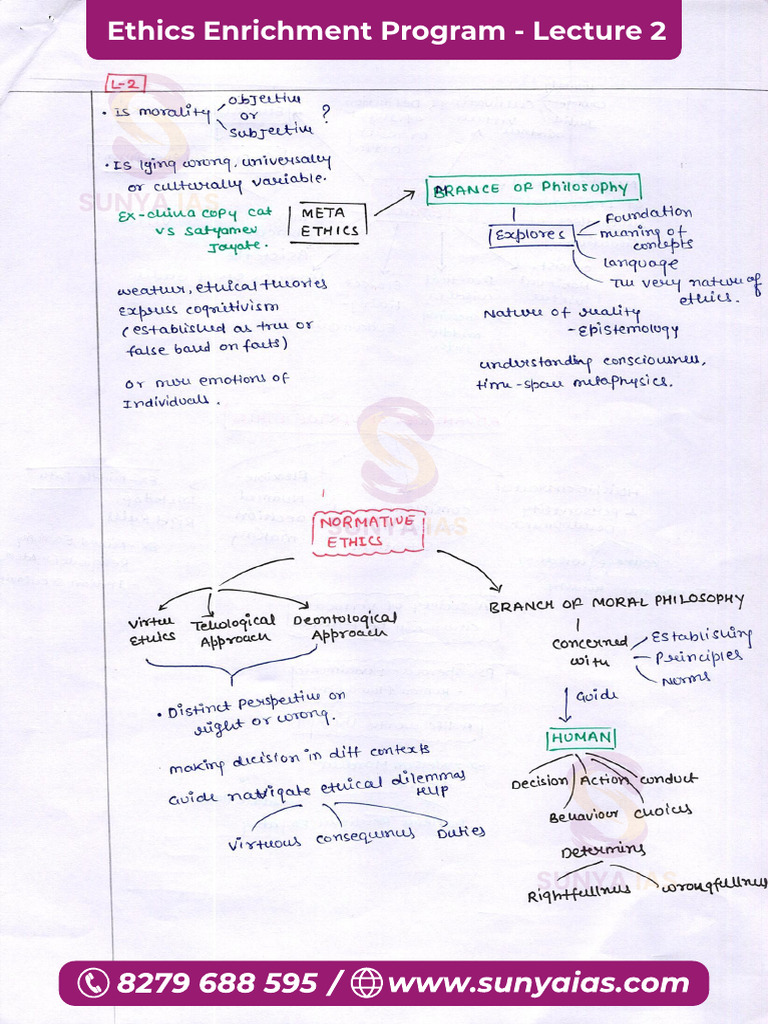 Ethics Enrichment Program - Lecture 2
L-2
• Is morality
Objective
or
Subjective
?
• Is lying wrong, universally
or culturally variable.
Ex-china copy cat
vs Satyamev
Jayate.
META
ETHICS
BRANCE OF Philosophy
Explores
Foundation
meaning of
concepts
language
The very nature of
ethics.
Nature of reality
- Epistemology
understanding consciousness,
time-space metaphysics.
weather, ethical theories
Express cognitivism
(established as true or
false based on facts)
Or mere emotions of
Individuals.
SUNYA IAS
NORMATIVE
ETHICS
SUNYA IAS
Virtue
Ethics
Teleological
Approach
Deontological
Approach
• Distinct perspective on
right or wrong.
making decision in diff contexts
Guide navigate ethical dilemmas
help
Virtuous
consequenus
Duties
BRANCH OF MORAL PHILOSOPHY
Concerned
with
Establishing
Principles
Norms
Guide
HUMAN
Decision
Action
conduct
Behaviour
choices
Determins
Rightfullnes
wrongfullnes
SUNYA IAS
8279 688 595 / www.sunyaias.com